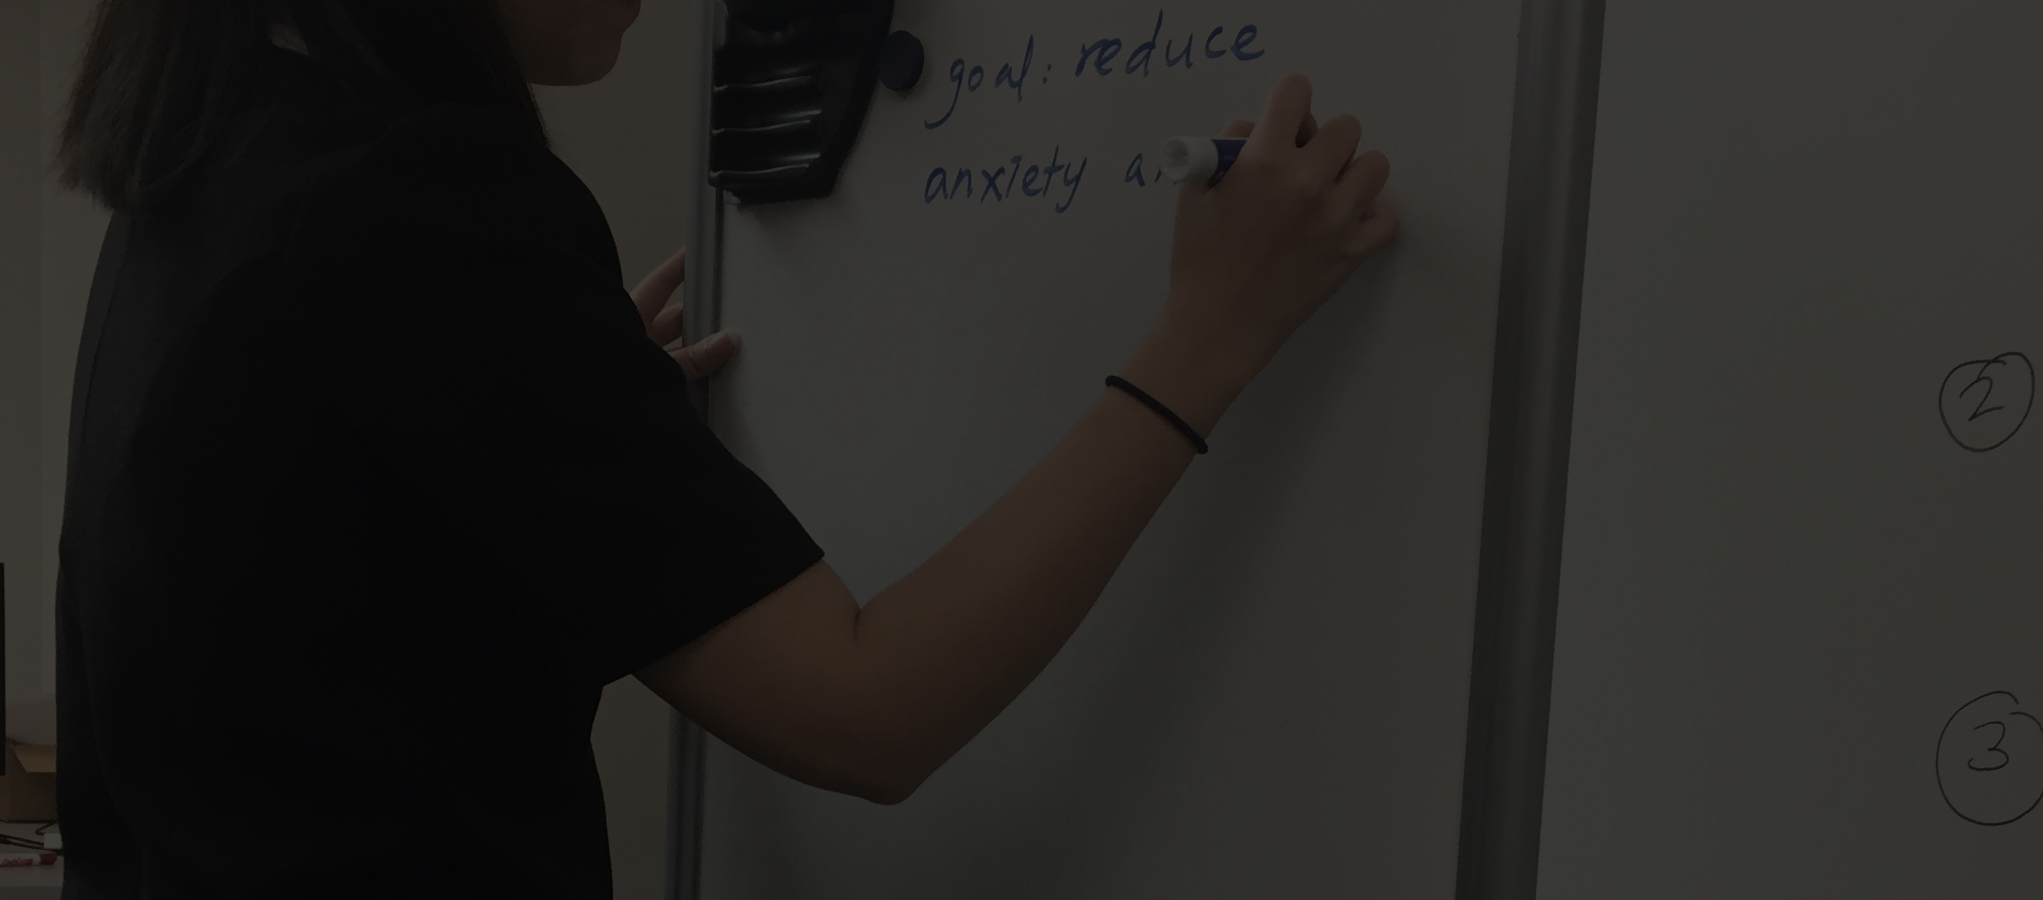 goal: reduce
anxiety
2
3